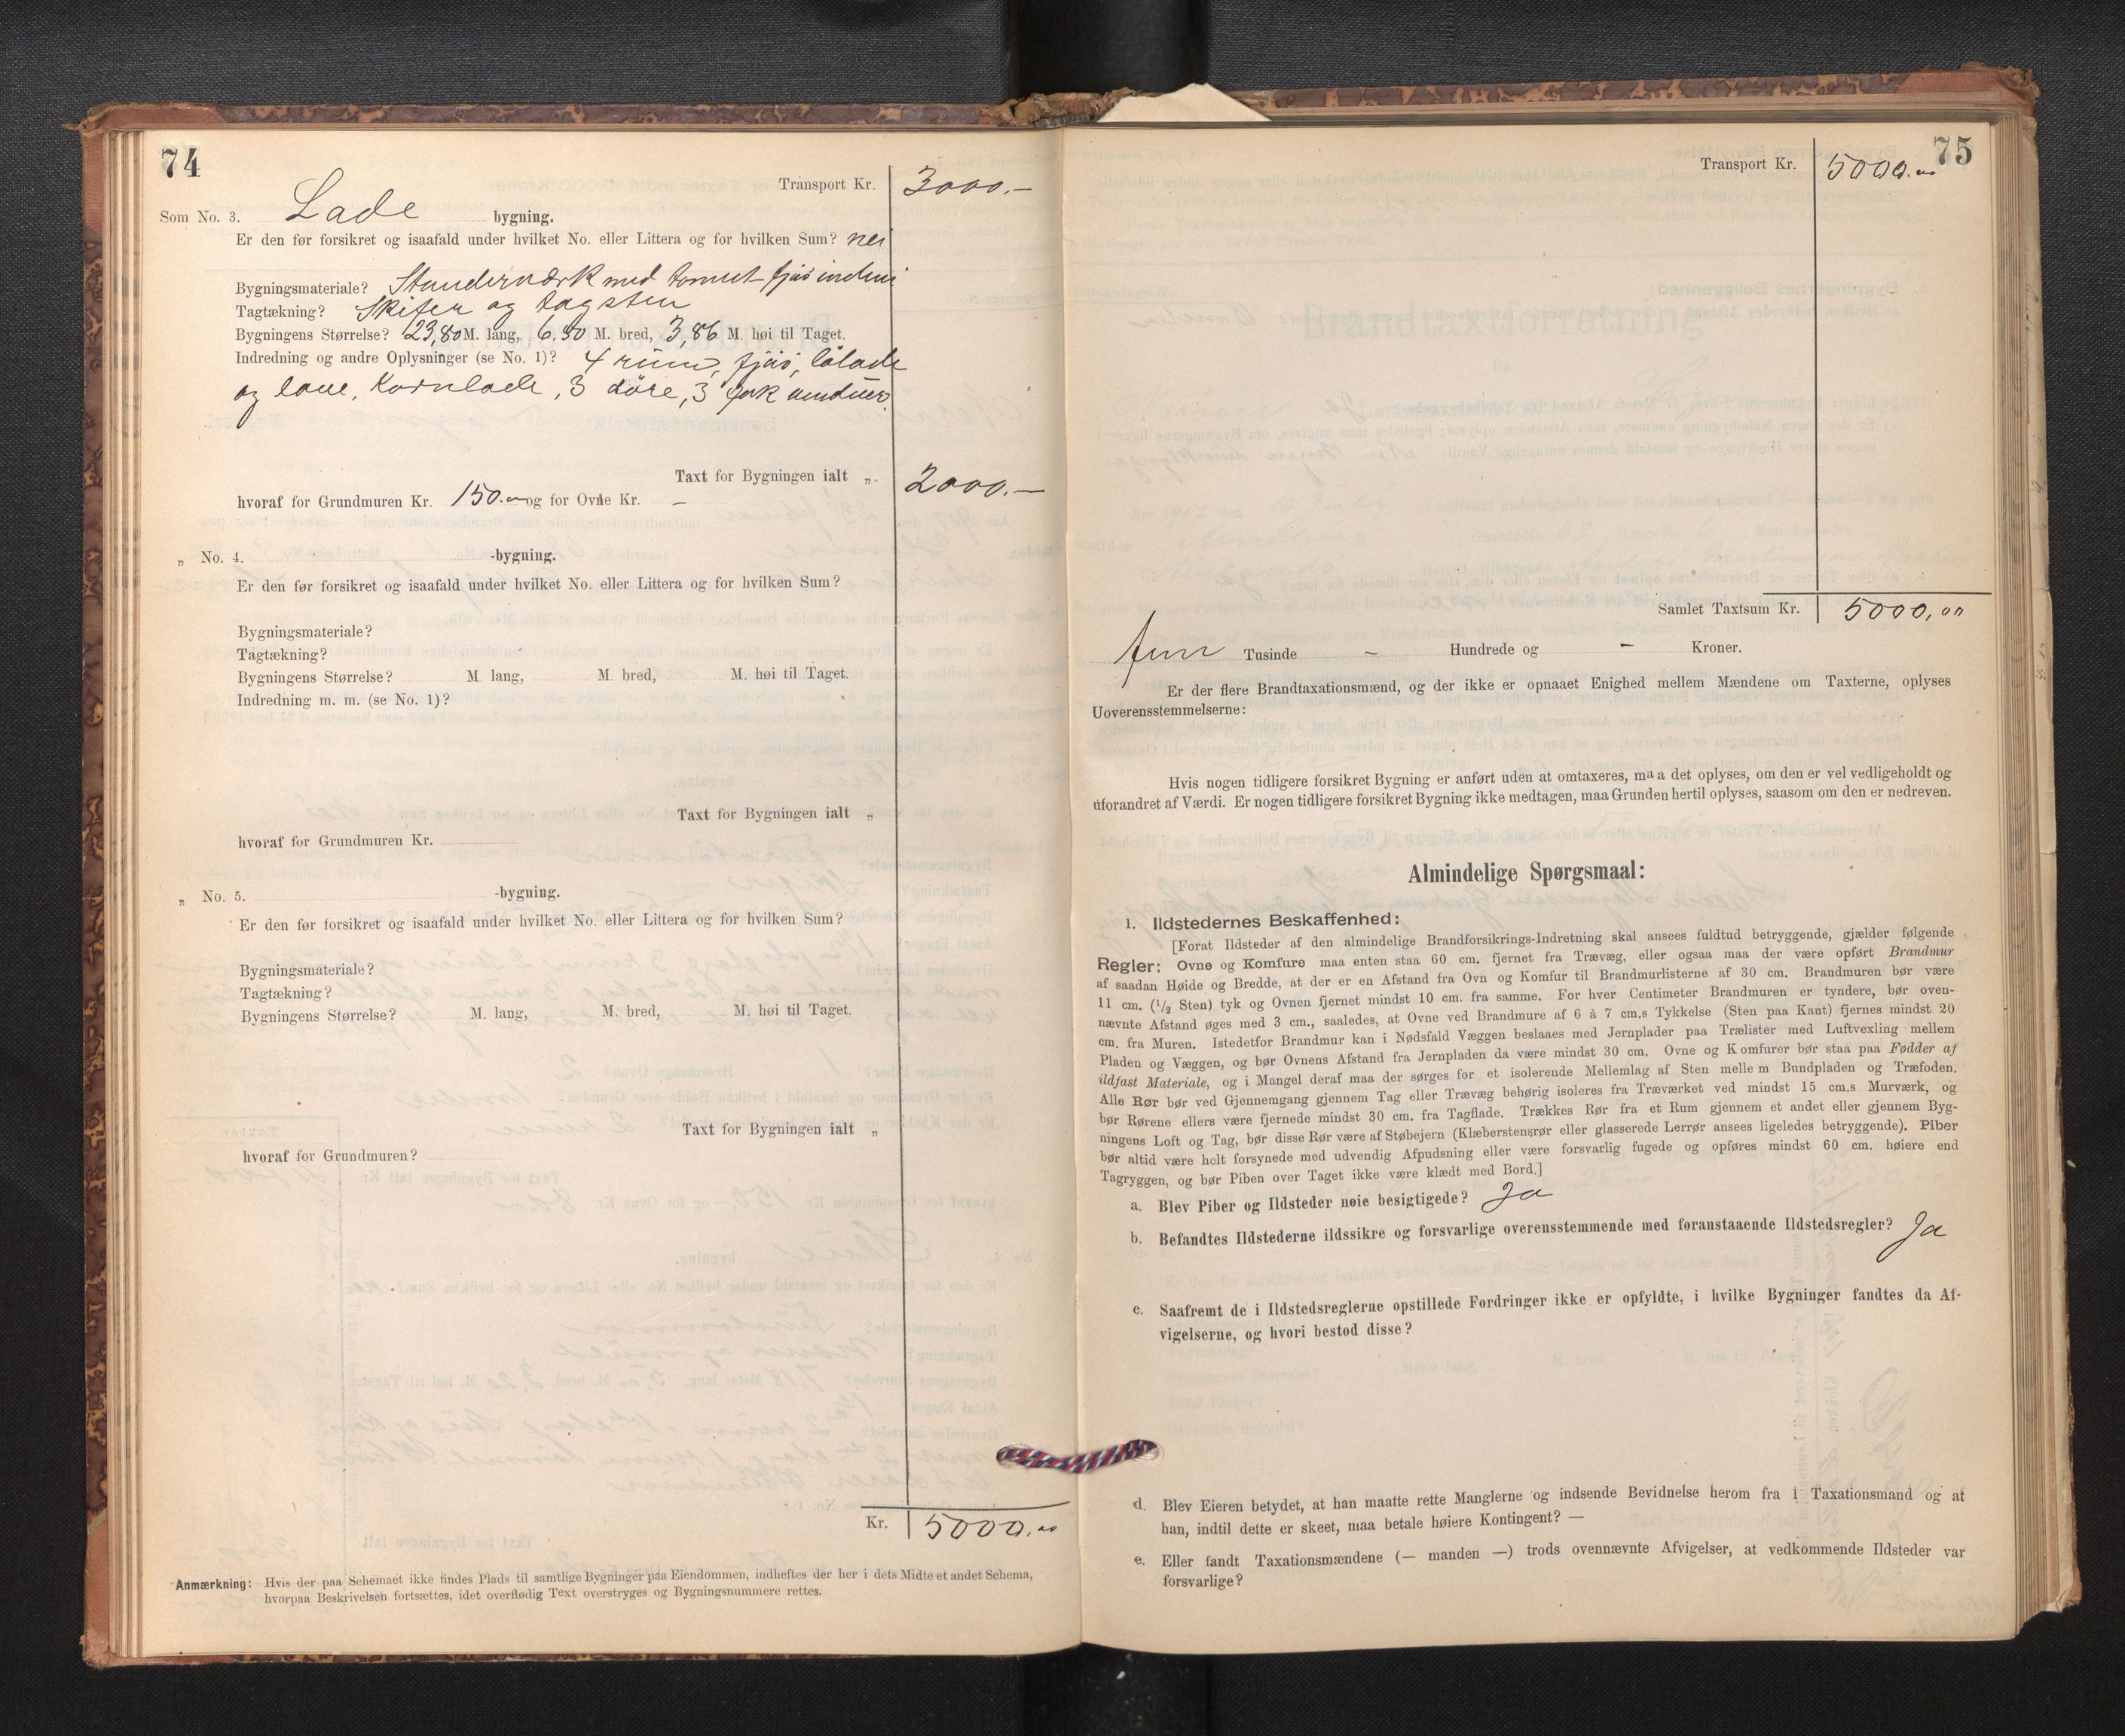 74
Transport Kr. 3000.–
Som No. 3. Lade bygning.
Er den før forsikret og isaafald under hvilket No. eller Littera og for hvilken Sum? nei
Bygningsmateriale? Standerværk med tømret fjøs indeni
Tagtækning? Skifer og tagsten
Bygningens Størrelse? 23,80 M. lang, 6.50 M. bred, 3,86 M. høi til Taget.
Indredning og andre Oplysninger (se No. 1)? 4 rum, fjøs, lølade
og love, Kornlade, 3 døre, 3 fjøs vinduer
Taxt for Bygningen ialt „ 2000.–
hvoraf for Grundmuren Kr. 150.00 og for Ovne Kr. –
„ No. 4. -bygning.
Er den før forsikret og isaafald under hvilket No. eller Littera og for hvilken Sum?
Bygningsmateriale?
Tagtækning?
Bygningens Størrelse? M. lang, M. bred, M. høi til Taget.
Indredning m. m. (se No. 1)?
Taxt for Bygningen ialt „
hvoraf for Grundmuren Kr.
„ No. 5. -bygning.
Er den før forsikret og isaafald under hvilket No. eller Littera og for hvilken Sum?
Bygningsmateriale?
Tagtækning?
Bygningens Størrelse? M. lang, M. bred, M. høi til Taget.
Taxt for Bygningen ialt „
hvoraf for Grundmuren?
Kr. 5000,00
Anmærkning: Hvis der paa Schemaet ikke findes Plads til samtlige Bygninger paa Eiendommen, indheftes der her i dets Midte et andet Schema,
hvorpaa Beskrivelsen fortsættes, idet overflødig Text overstryges og Bygningsnummere rettes.
75
Transport Kr. 5000.00
Samlet Taxtsum Kr. 5000,00
fem Tusinde – Hundrede og – Kroner.
Er der flere Brandtaxationsmænd, og der ikke er opnaaet Enighed mellem Mændene om Taxterne, oplyses
Uoverensstemmelserne:
Hvis nogen tidligere forsikret Bygning er anført uden at omtaxeres, maa det oplyses, om den er vel vedligeholdt og
uforandret af Værdi. Er nogen tidligere forsikret Bygning ikke medtagen, maa Grunden hertil oplyses, saasom om den er nedreven.
Almindelige Spørgsmaal:
1. Ildstedernes Beskaffenhed:
[Forat Ildsteder af den almindelige Brandforsikrings-Indretning skal ansees fuldtud betryggende, gjælder følgende
Regler: Ovne og Komfure maa enten staa 60 cm. fjernet fra Trævæg, eller ogsaa maa der være opført Brandmur
af saadan Høide og Bredde, at der er en Afstand fra Ovn og Komfur til Brandmurlisterne af 30 cm. Brandmuren bør være
11 cm. (1/2 Sten) tyk og Ovnen fjernet mindst 10 cm. fra samme. For hver Centimeter Brandmuren er tyndere, bør oven-
nævnte Afstand øges med 3 cm., saaledes, at Ovne ved Brandmure af 6 à 7 cm.s Tykkelse (Sten paa Kant) fjernes mindst 20
cm. fra Muren. Istedetfor Brandmur kan i Nødsfald Væggen beslaaes med Jernplader paa Trælister med Luftvexling mellem
Pladen og Væggen, og bør Ovnens Afstand fra Jernpladen da være mindst 30 cm. Ovne og Komfurer bør staa paa Fødder af
ildfast Materiale, og i Mangel deraf maa der sørges for et isolerende Mellemlag af Sten mellem Bundpladen og Træfoden.
Alle Rør bør ved Gjennemgang gjennem Tag eller Trævæg behørig isoleres fra Træværket ved mindst 15 cm.s Murværk, og
bør Rørene ellers være fjernede mindst 30 cm. fra Tagflade. Trækkes Rør fra et Rum gjennem et andet eller gjennem Byg-
ningens Loft og Tag, bør disse Rør være af Støbejern (Klæberstensrør eller glasserede Lerrør ansees ligeledes betryggende). Piber
bør altid være helt forsynede med udvendig Afpudsning eller være forsvarlig fugede og opføres mindst 60 cm. høiere end
Tagryggen, og bør Piben over Taget ikke være klædt med Bord.]
a. Blev Piber og Ildsteder nøie besigtigede? Ja
b. Befandtes Ildstederne ildssikre og forsvarlige overensstemmende med foranstaaende Ildstedsregler? Ja
c. Saafremt de i Ildstedsreglerne opstillede Fordringer ikke er opfyldte, i hvilke Bygninger fandtes da Af-
vigelserne, og hvori bestod disse?
d. Blev Eieren betydet, at han maatte rette Manglerne og indsende Bevidnelse herom fra 1 Taxationsmand og at
han, indtil dette er skeet, maa betale høiere Kontingent? —
e. Eller fandt Taxationsmændene (— manden —) trods ovennævnte Afvigelser, at vedkommende Ildsteder var
forsvarlige?